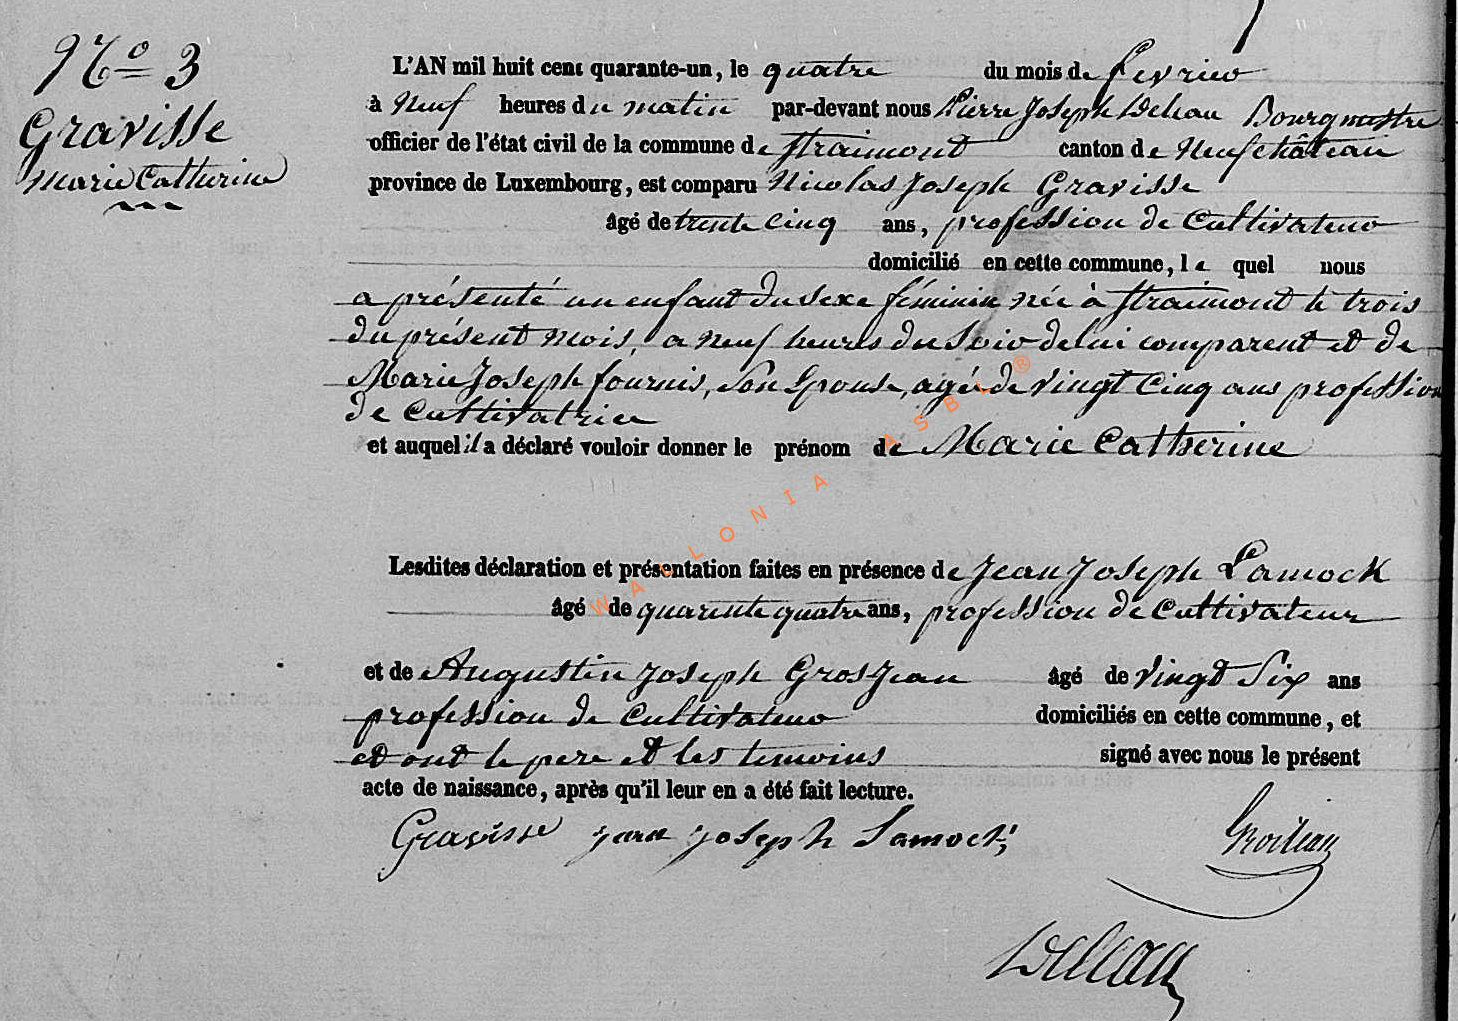 No 3
Gravisse
Marie Catherine
L'AN mil huit cent quarante-un, le quatre du mois de fevrier
à Neuf heures du matin par-devant nous Pierre Joseph Deleau Bourgmestre
officier de l'état civil de la commune de Straimont canton de Neufchâteau
province de Luxembourg, est comparu Nicolas Joseph Gravisse
âgé de trente cinq ans, profession de Cultivateur
domicilié en cette commune, le quel nous
a présenté un enfant du sexe féminin née à Straimont le trois
du présent mois, a neuf heures du Soir de lui comparent et de
Marie Joseph fournis, son Epouse, agée de vingt Cinq ans profession
de Cultivatrice
et auquel il a déclaré vouloir donner le prénom de Marie Catherine
WALLONIA ASBL ®
Lesdites déclaration et présentation faites en présence de Jean Joseph Lamock
âgé de quarente quatre ans, profession de Cultivateur
et de Augustin Joseph Grosjean âgé de vingt Six ans
profession de Cultivateur domiciliés en cette commune, et
et ont le pere et les temoins signé avec nous le présent
acte de naissance, après qu'il leur en a été fait lecture.
Gravisse jean joseph Lamock Grosjean
Deleau